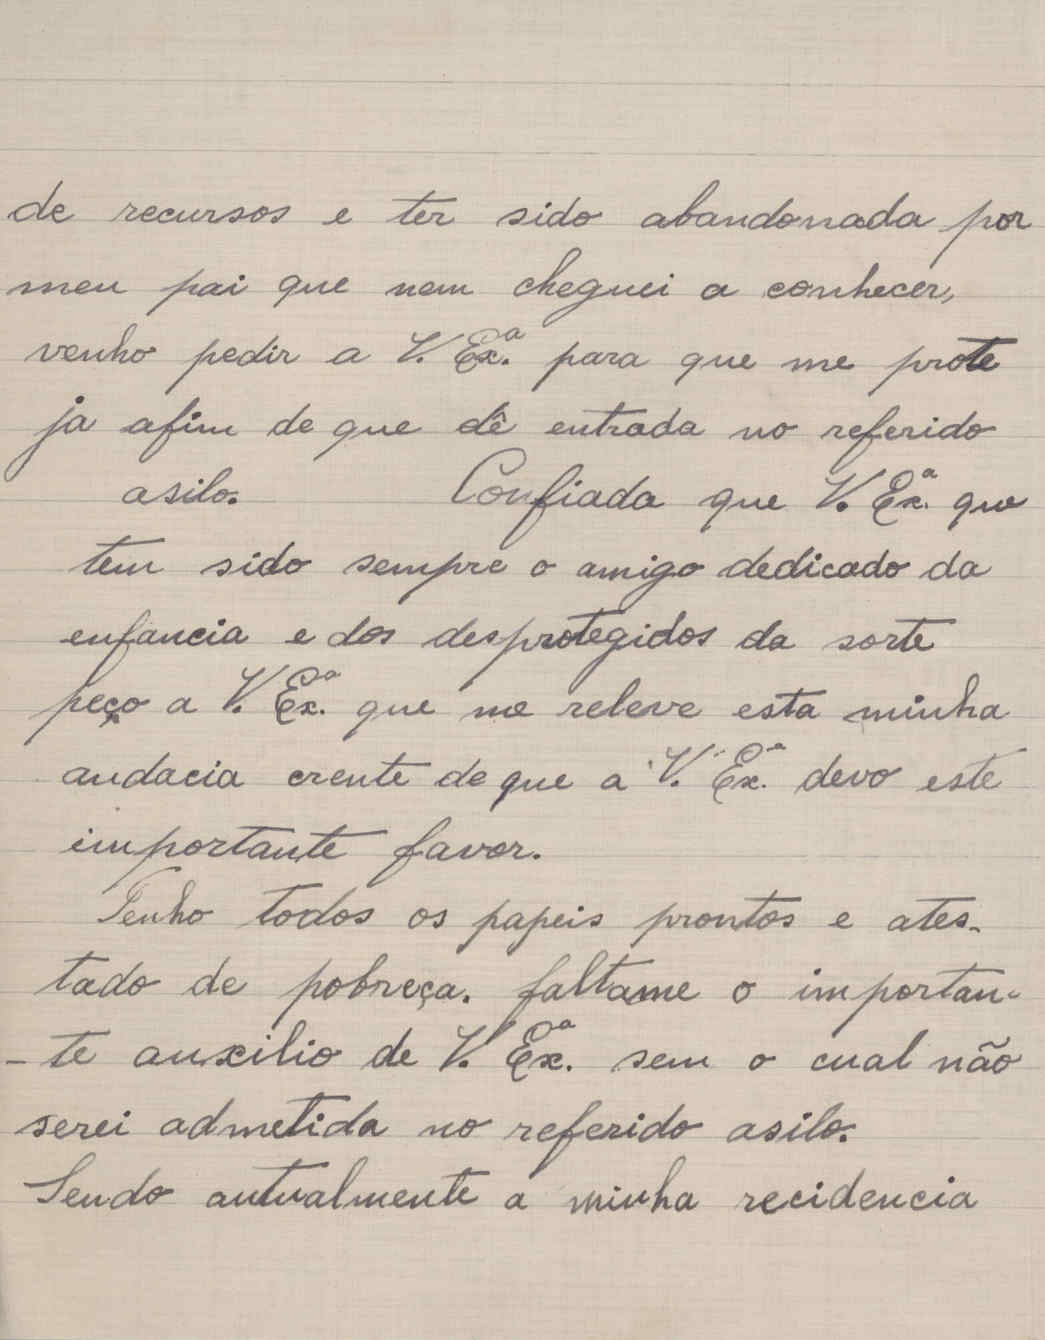 de recursos e ter sido abandonada por
meu pai que nem cheguei a conhecer,
venho pedir a V. Ex.ª para que me prote
ja afim de que dê entrada no referido
asilo. Confiada que V. Ex.ª que
tem sido sempre o amigo dedicado da
enfancia e dos desprotegidos da sorte
peço a V. Ex.ª que me releve esta minha
audacia crente de que a V. Ex.ª devo este
importante favor.
Tenho todos os papeis prontos e ates-
tado de pobreça. faltame o importan-
-te auxilio de V. Ex.ª sem o cual não
serei admetida no referido asilo.
Sendo autualmente a minha recidencia